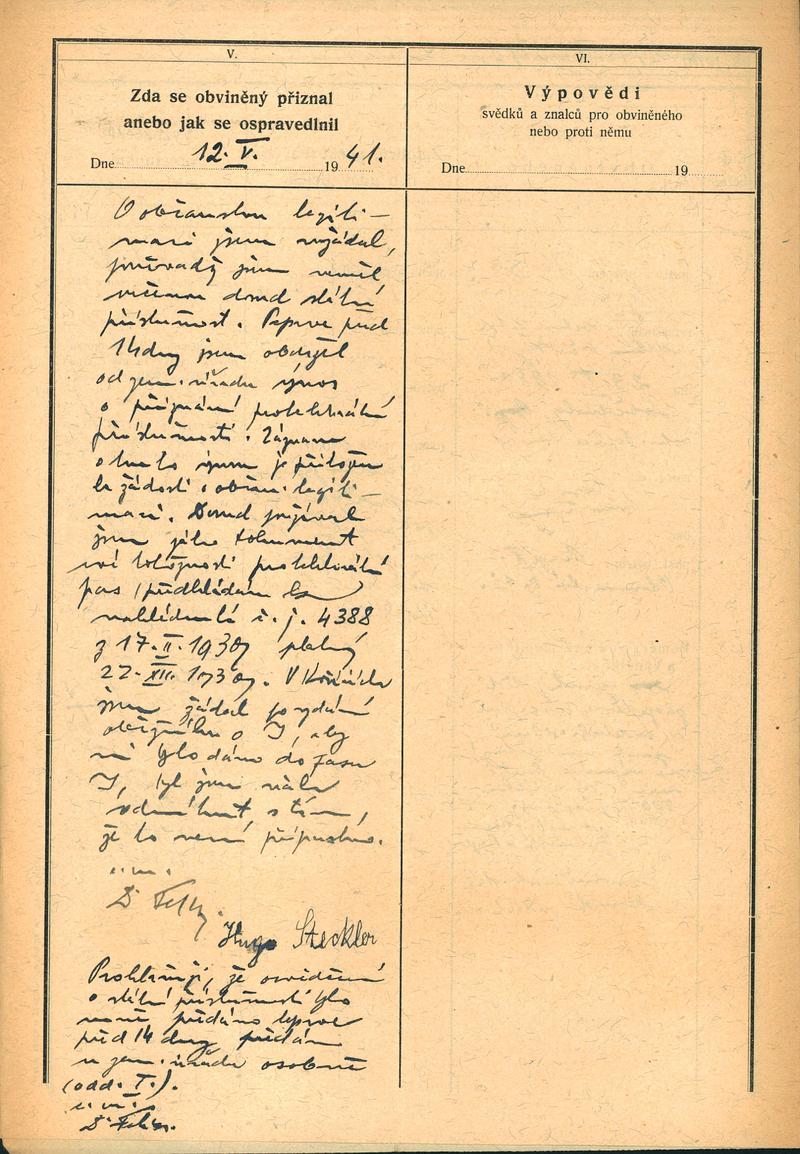 V.
Zda se obviněný přiznal
anebo jak se ospravedlnil
Dne 12. V. 1941.
VI.
Výpovědi
svědků a znalců pro obviněného
nebo proti němu
Dne 19
O občanskou legiti-
maci jsem nežádal,
jsem neměl
dosud státní
příslušnost. Teprve před
14 dny jsem obdržel
od zem. úřadu výnos
o přiznání protektorátní
příslušnosti. Záznam
o tomto výnosu je přiložen
k žádosti o občan. legiti-
maci. Dosud
jsem jako dokument
své totožnosti protektorátní
pas (předkládám k
nahlédnutí č. j. 4388
z 17. II. 1939 platný
22. XII. 1939. V
jsem žádal o vydání
o J, aby
mi bylo dáno do pasu
J, byl jsem však
odmítnut, s tím,
že to není přípustno.
Hugo Steckler
Prohlašuji, že osvědčení
o státní příslušnosti bylo
mně předáno teprve
před 14 dny
u zem. úřadu osobně
(odd. I.).